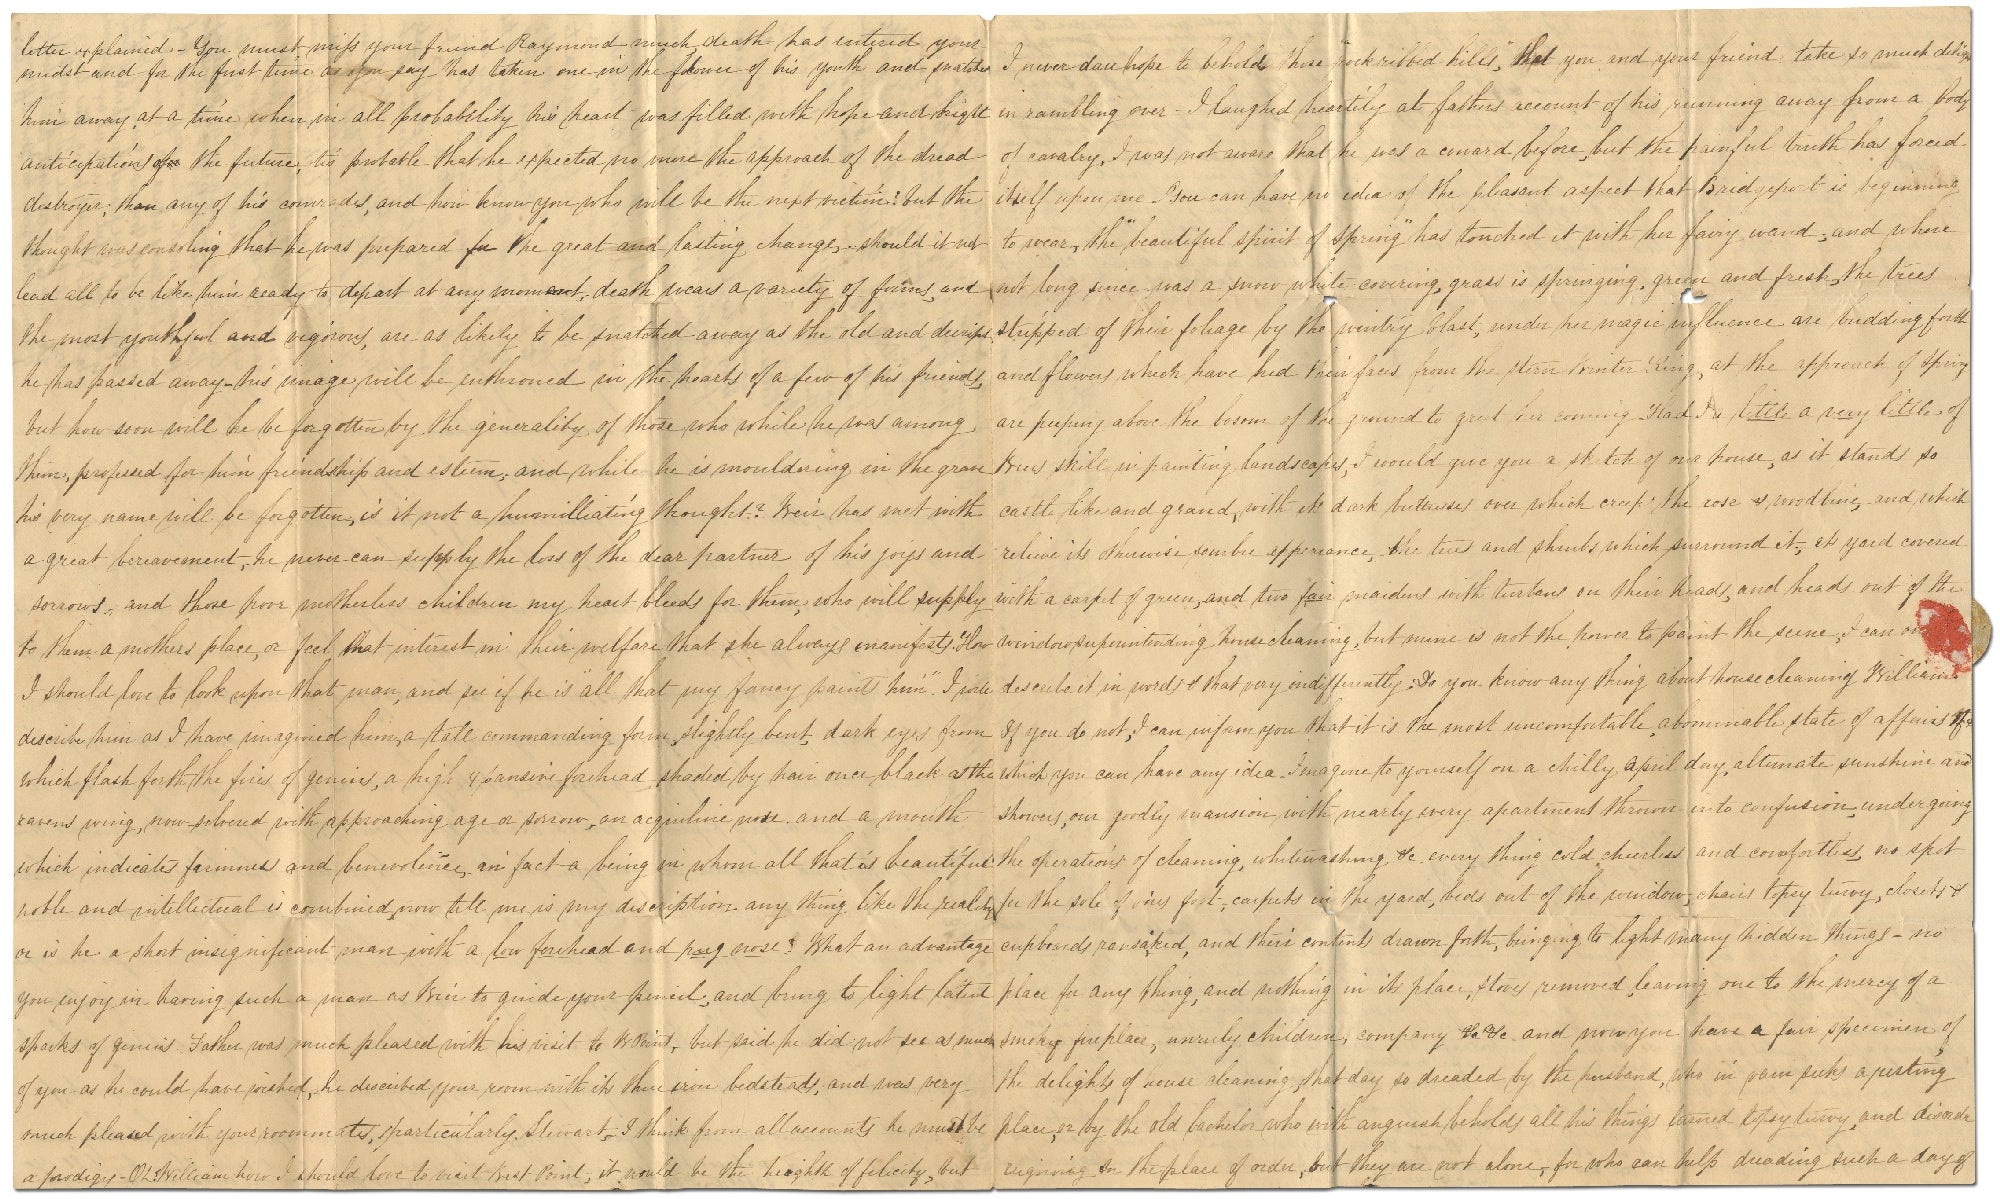 letter explained. - You must miss your friend Raymond much, death has entered your
midst and for the first time as you say has taken one in the flower of his youth and snatched
him away at a time when in all probability his heart was filled with hope and bright
anticipations for the future, tis probable that he expected no more the approach of the dread
destroyer, than any of his comrades, and how know you who will be the next victim? but the
thought was consoling that he was prepared for the great and lasting change, should it not
lead all to be like him ready to depart at any moment, death wears a variety of forms, and
the most youthful and vigorous, are as likely to be snatched away as the old and decrepid
he has passed away - his image will be enthroned in the hearts of a few of his friends,
but how soon will he be forgotten by the generality of those who while he was among
them, professed for him friendship and esteem, and while he is mouldering in the grave
his very name will be forgotten, is it not a humiliating thought? Weir has met with
a great bereavement, he never can supply the loss of the dear partner of his joys and
sorrows, and those poor motherless children my heart bleeds for them, who will supply
to them a mothers place, or feel that interest in their welfare that she always manifests. How
I should love to look upon that man, and see if he is "all that my fancy paints him". I will
describe him as I have imagined him, a tall commanding form, slightly bent, dark eyes from
which flash forth the fires of genius, a high expansive forehead, shaded by hair once black as the
ravens wing, now silvered with approaching age or sorrow, an acquiline nose and a mouth
which indicates firmness and benevolence, in fact a being in whom all that is beautiful
noble and intellectual is combined, now tell me is my discription any thing like the reality
or is he a short insignificant man with a low forehead and pug nose? What an advantage
you enjoy in having such a man as Weir to guide your pencil, and bring to light latent
sparks of genius. Father was much pleased with his visit to W Point, but said he did not see as much
of you as he could have wished, he discribed your room with its three iron bedsteads, and was very
much pleased with your roommates, particularly Stewart, I think from all accounts he must be
a prodigy - Oh William how I should love to visit West Point, it would be the height of felicity, but
I never dare hope to behold those "rock ribbed hills", that you and your friend take so much delight
in rambling over - I laughed heartily at fathers account of his running away from a body
of cavalry, I was not aware that he was a coward before, but the painful truth has forced
itself upon me. You can have no idea of the pleasant aspect that Bridgeport is beginning
to wear, the "beautiful spirit of spring" has touched it with her fairy wand, and where
not long since was a snow white covering, grass is springing, green and fresh, the trees
stripped of their foliage by the wintry blast, under her magic influence are budding forth
and flowers which have hid their faces from the stern Winter King, at the approach of spring
are peeping above the bosom of the ground to greet her coming. Had I a little a very little of
Weirs skill in painting landscapes, I would give you a sketch of our house, as it stands so
castle like and grand, with its dark buttresses over which creep the rose & woodbine, and which
relieve its otherwise sombre apperance, the trees and shrubs which surround it, its yard covered
with a carpet of green, and two fair maidens with turbans on their heads, and heads out of the
window superintending housecleaning, but mine is not the power to paint the scene, I can
describe it in words & that very indifferently. Do you know any thing about housecleaning William
If you do not, I can inform you that it is the most uncomfortable, abominable state of affairs of
which you can have any idea. Imagine to yourself on a chilly April day, alternate sunshine and
showers, our goodly mansion with nearly every apartment thrown into confusion, undergoing
the operations of cleaning, whitewashing &c every thing cold, cheerless and comfortless, no spot
for the sole of ones foot, carpets in the yard, beds out of the window, chairs topsy turvy, closets &
cupboards ransaked, and their contents drawn forth, bringing to light many hidden things - no
place for any thing, and nothing in its place, stoves removed, leaving one to the mercy of a
smoky fireplace, unruly children, company &c &c and now you have a fair specimen of
the delights of house cleaning, that day so dreaded by the husband, who in vain seeks a resting
place, or by the old bachelor who with anguish beholds all his things turned topsy turvy, and disorder
reigning in the place of order, but they are not alone, for who can help dreading such a day of